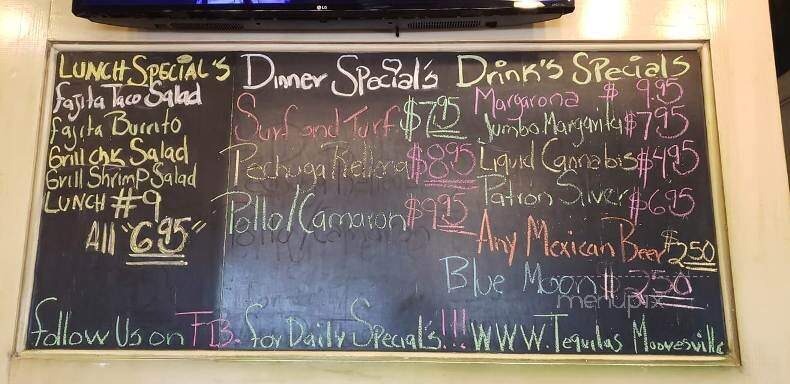 LG
LUNCH SPECIAL'S
Fajita Taco Salad
Fajita Burrito
Grill chk Salad
Grill Shrimp Salad
LUNCH #9
All "6.95"
Dinner Special's
Surf and Turf $7.95
Pechuga Rellena $8.95
Pollo/Camaron $9.95
Drink's Specials
Margarona $ 9.95
Jumbo Margarita $7.95
Liquid Cannabis $4.95
Patron Silver $6.95
Any Mexican Beer $2.50
Blue Moon $ 2.50
menupix
Follow Us on FB. For Daily Special's!!! WWW.Tequilas Mooresville